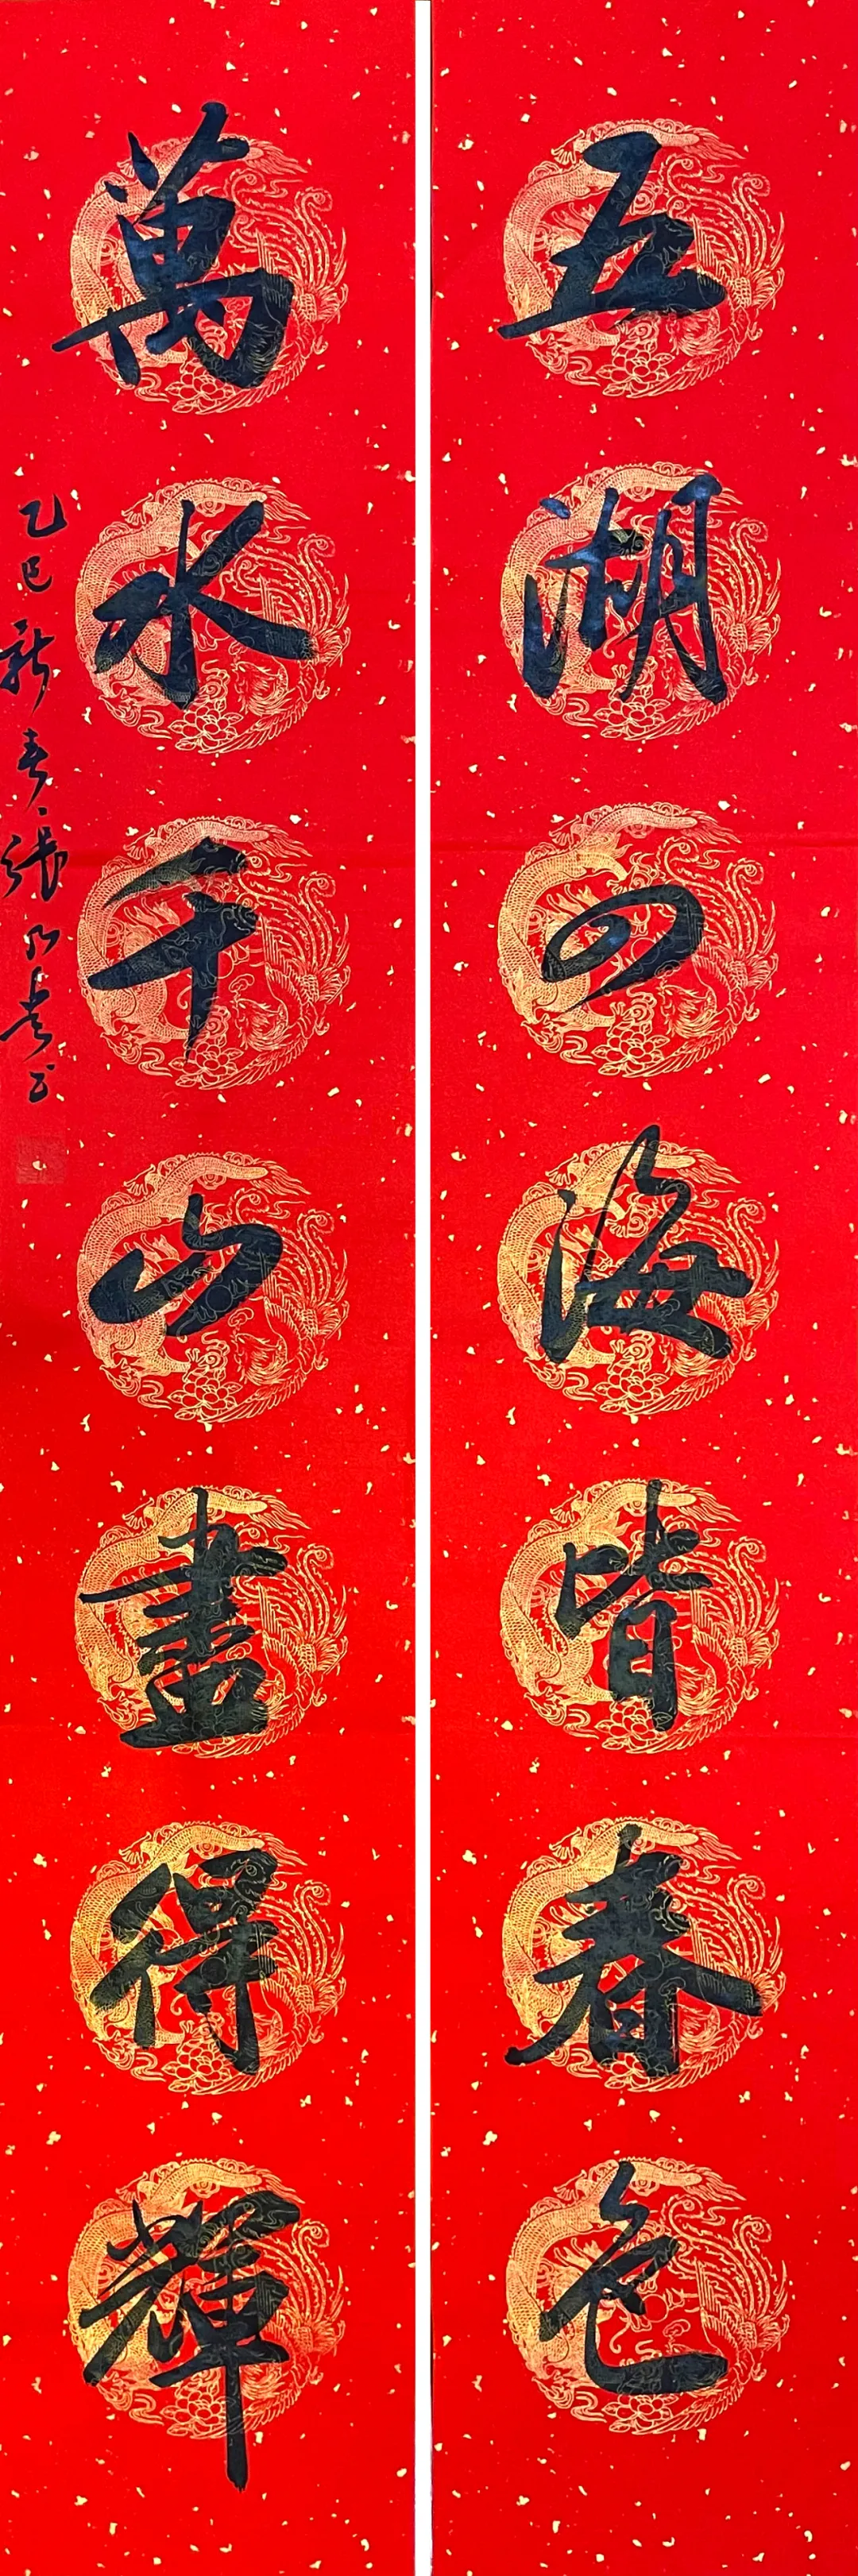 五湖四海皆春色
萬水千山盡得輝
乙巳新春張